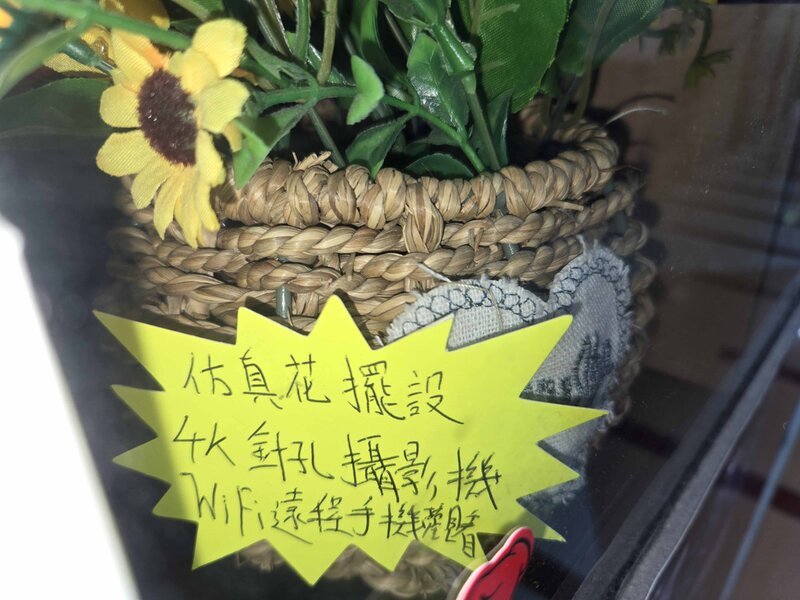 仿真花擺設
4K 針孔攝影機
WiFi遠程手機觀看